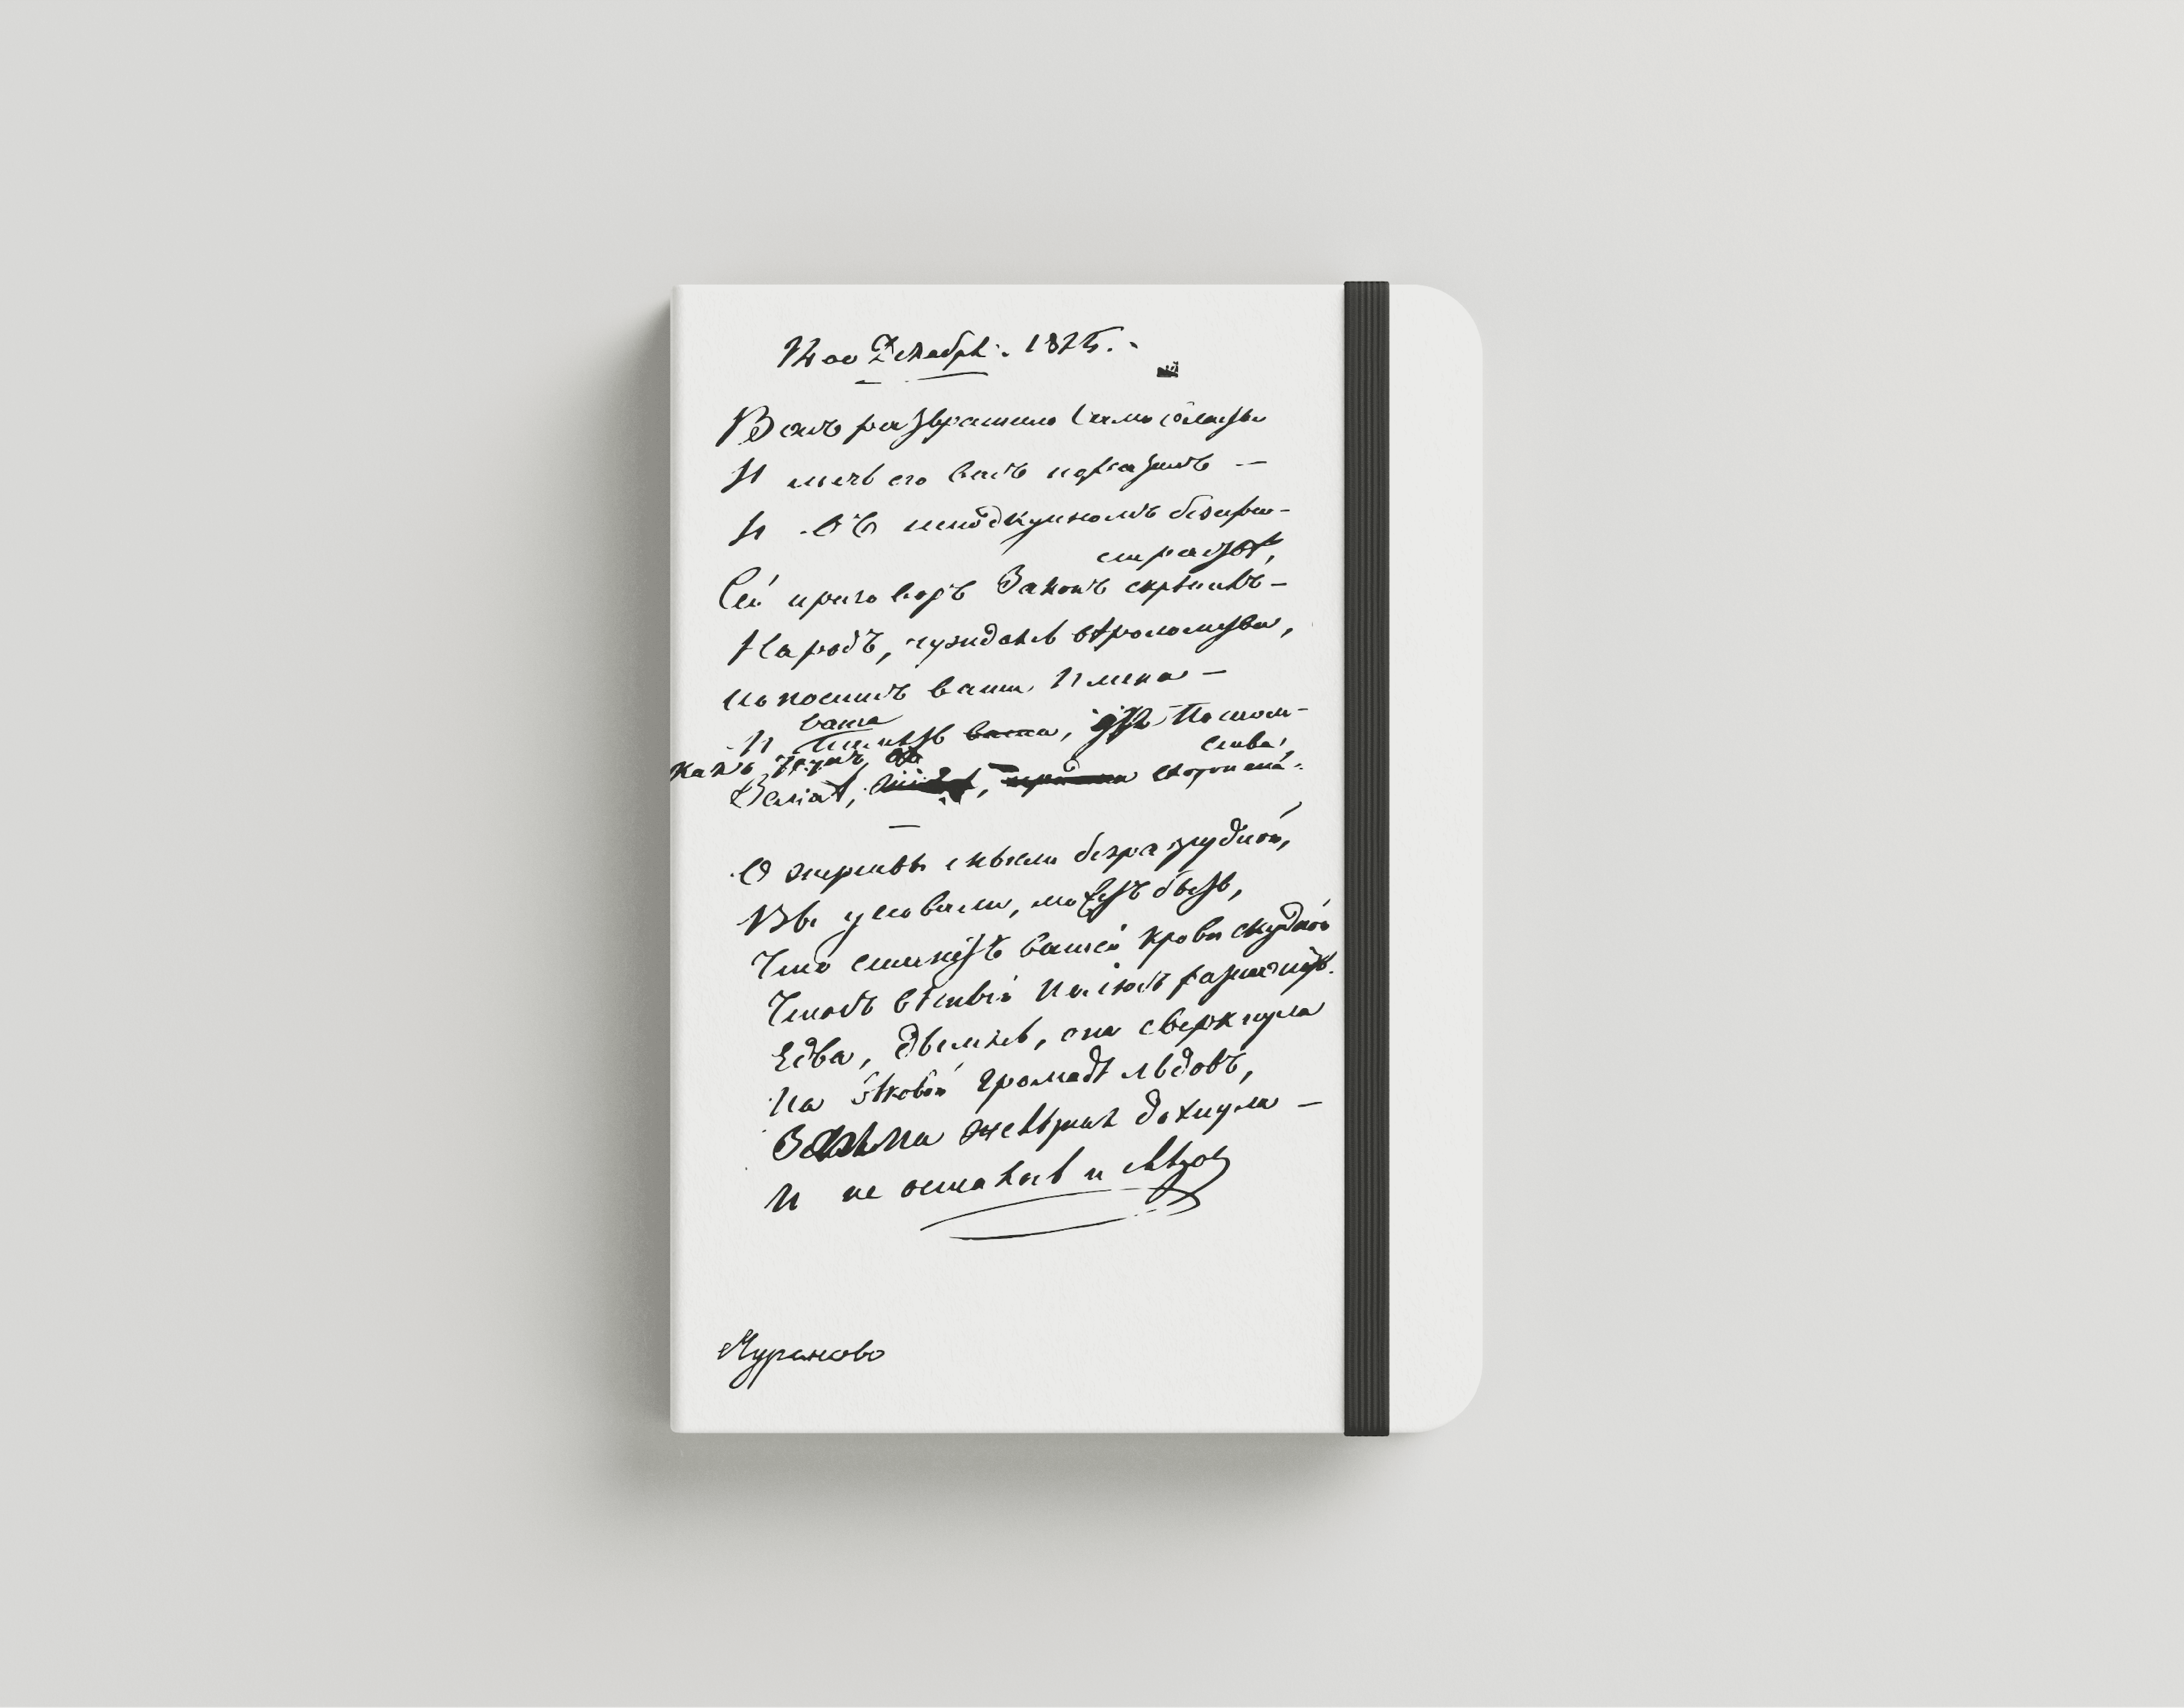 14-ое Декабря. 1825. -
Васъ развратило Самовластье
И мечъ его васъ поразилъ —
И въ неподкупномъ безпри-
страстьѣ,
Сей приговоръ Законъ скрѣпилъ —
Народъ, чуждаясь вѣроломства,
Поноситъ ваши Имена —
ваша
И память ваша, для Потом-
ства,
Какъ трупъ, въ
Землѣ, схоронена.
—
О жертвы мысли безразсудной,
Вы уповали, можетъ быть,
Что станетъ вашей крови скудной
Чтобъ вѣчный полюсъ растопить.
Едва, дымясь, она сверкнула
На вѣковой громадѣ льдовъ,
Зима желѣзная дохнула —
И не осталось и слѣдов
Мураново